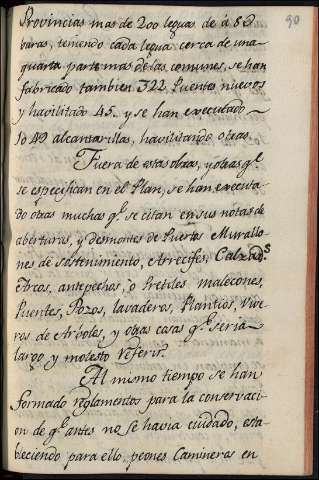 90
Provincias mas de 200 leguas de à 83
varas, teniendo cada legua cerca de una
quarta parte mas de las comunes, se han
fabricado tambien 322 Puentes nuevos
y havilitado 45. y se han executado
1049 alcantarillas, havilitando otras.
Fuera de estas obras, y otras q.e
se especifican en el Plan, se han executa
do otras muchas q.e se citan en sus notas de
aberturas, y desmontes de Puertos Murallo
nes de sostenimiento, Arrecifes, Calzad.s
Arcos, antepechos, o Pretiles malecones,
Puentes, Pozos, lavaderos, Plantios, Vive
ros de Arboles, y otras cosas q.e seria
largo y molesto referir.
Al mismo tiempo se han
formado reglamentos para la conservaci
on de q.e antes no se havia cuidado, esta
bleciendo para ello, peones Camineros en